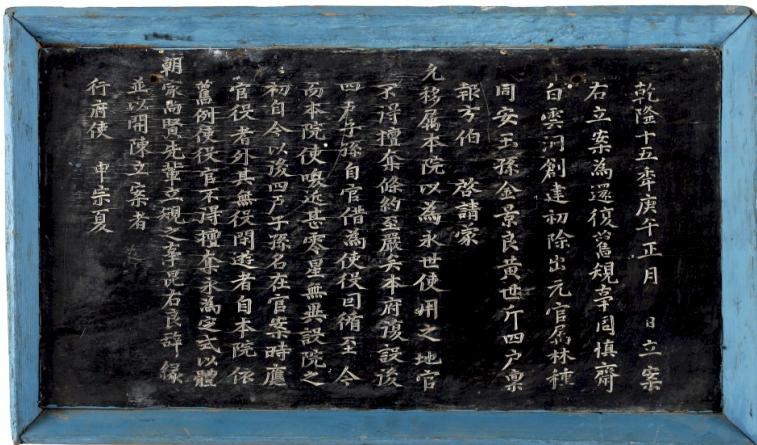 乾隆十五年庚午正月 日立案
右立案為還復舊規事周愼齋
白雲洞創建初除出元官属林種
同安玉孫金景良黄世斤四户禀
報方伯 啓請蒙
允移属本院以為永世使用之地官
不得擅奪條約至嚴矣本府復設後
四户子孫自官借為使役因循至 今
而本院使喚近甚零星無異設院之
初自今以後四户子孫名在官案時應
官役者外其無役閑遊者自本院依
舊例使役官不得擅奪永為定式以體
朝家尚賢先輩立規之事是右良辞縁
並以開陳立案者
行府使 申宗夏